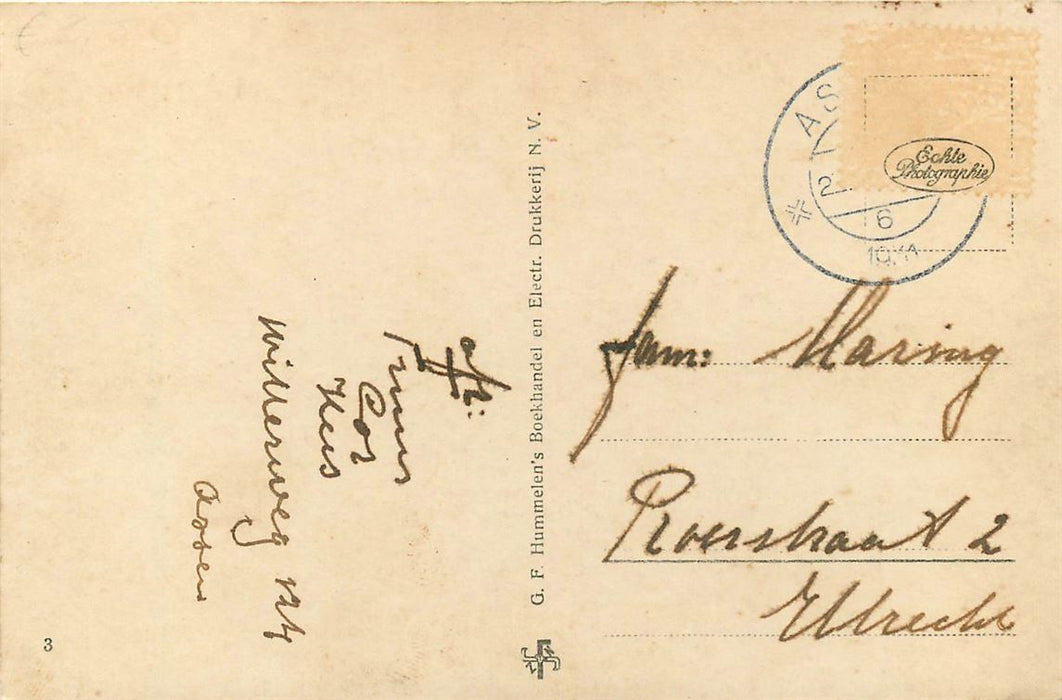 afz:
Truus
Cor
Heus
Witterweg 124
Assen
3
G. F. Hummelen's Boekhandel en Electr. Drukkerij N. V.
AS
2
6
10.11
Echte
Photographie
fam: Maring
Roerstraat 2
Utrecht